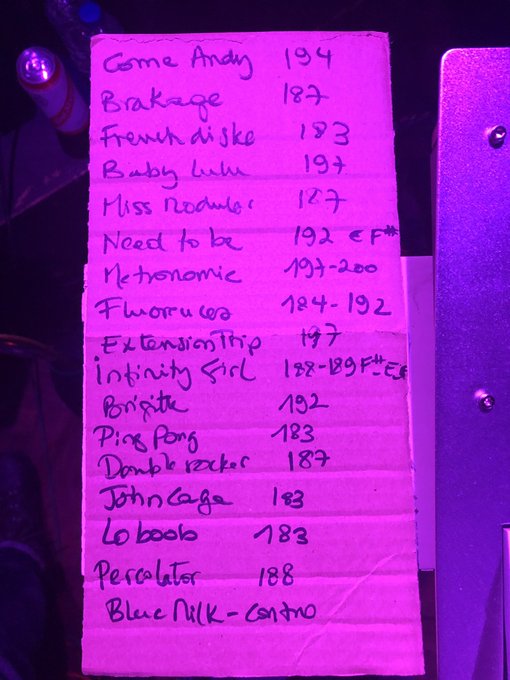 Come Andy 194
Brakage 187
French diske 183
Baby lulu 197
Miss Modular 187
Need to be 192 E F#
Metronomic 197-200
Fluorences 184-192
Extension Trip 197
Infinity Girl 188-189 F# E
Brigitte 192
Ping Pong 183
Double rocker 187
John Cage 183
Lo boob 183
Percolator 188
Blue Milk - contro